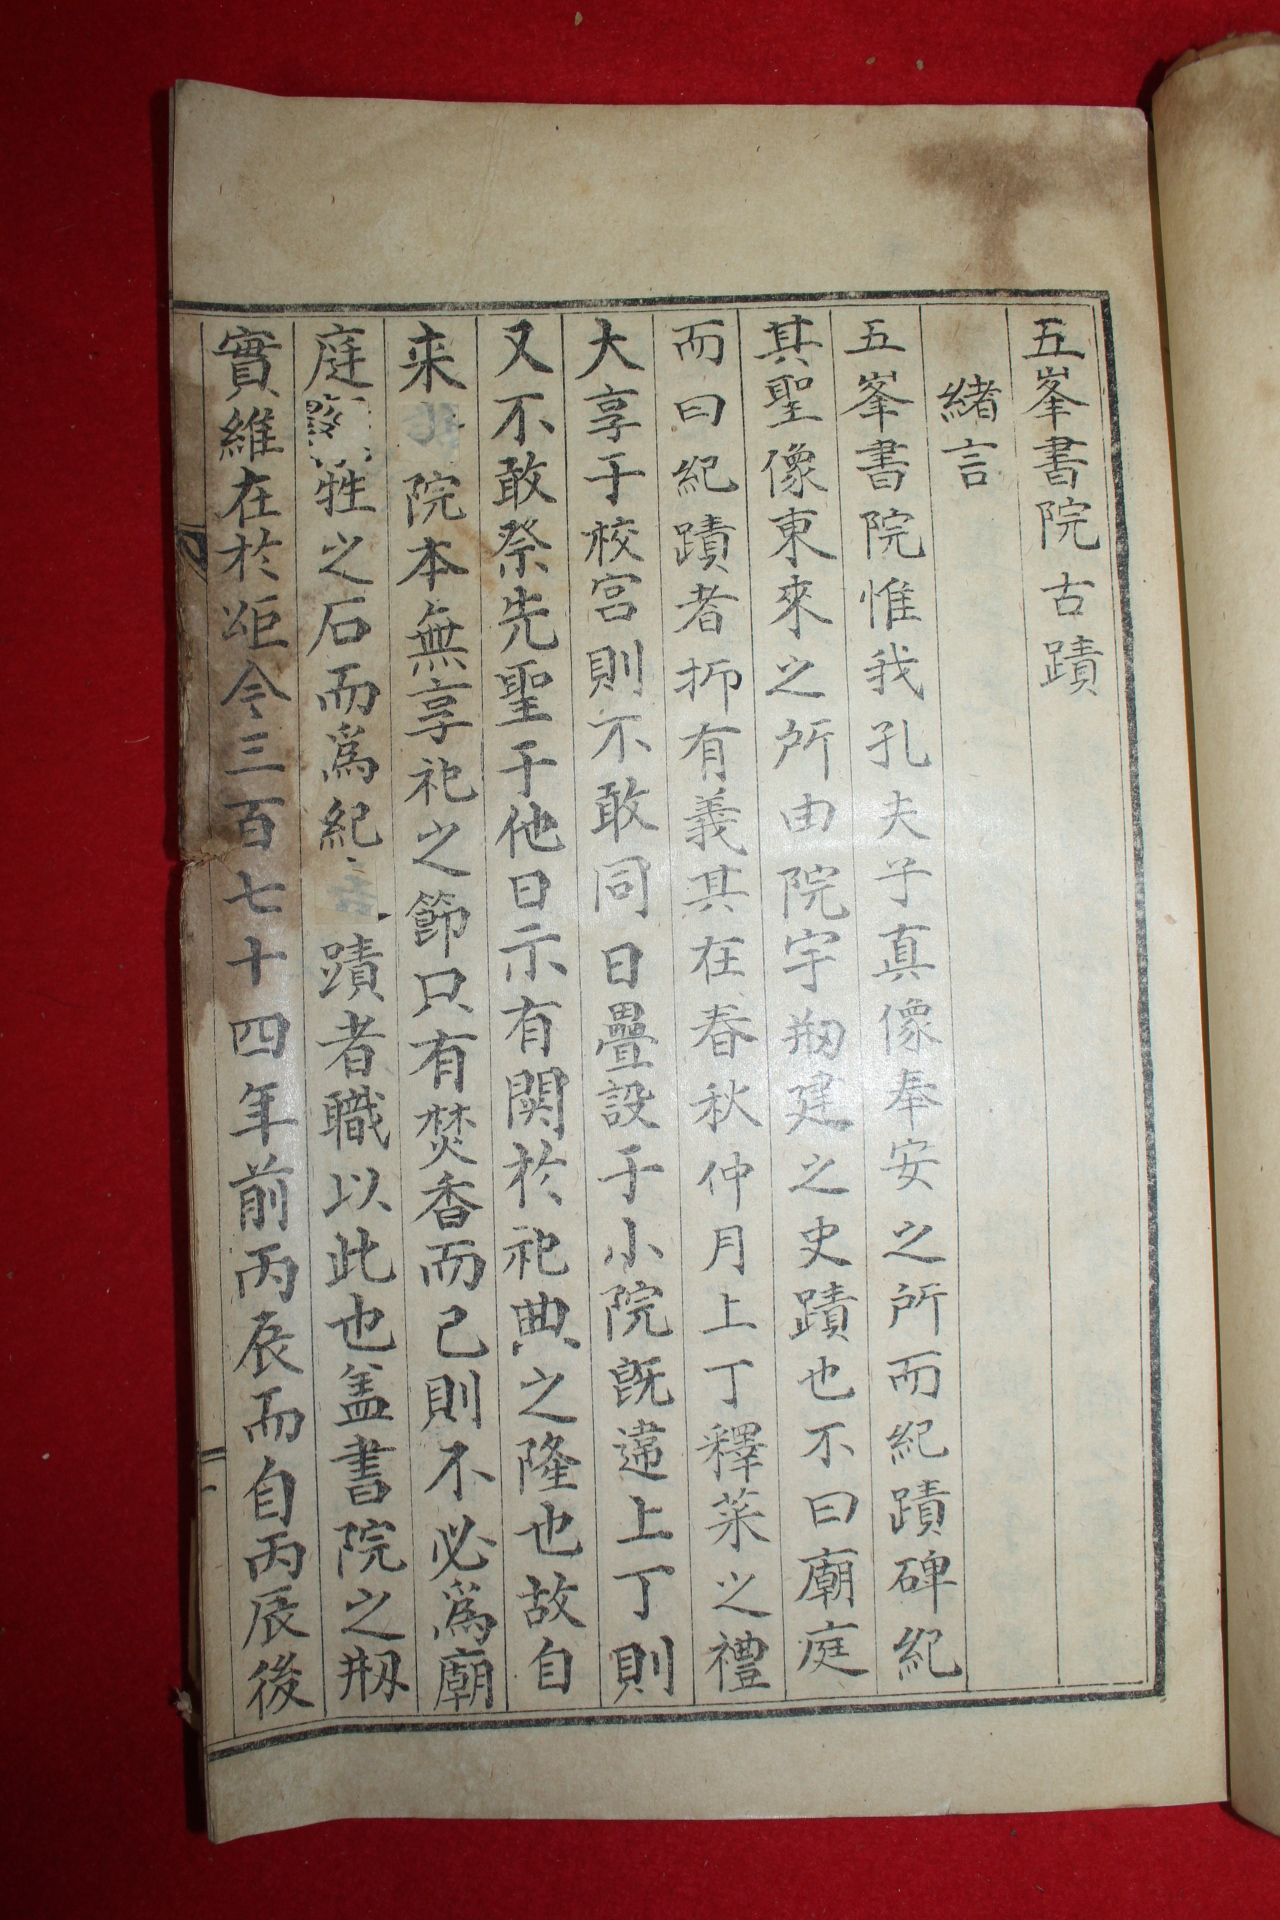 五峯書院古蹟
緒言
五峯書院惟我孔夫子真像奉安之所而紀蹟碑紀
其聖像東來之所由院宇刱建之史蹟也不曰廟庭
而曰紀蹟者抑有義其在春秋仲月上丁釋菜之禮
大享于校宮則不敢同日疊設于小院旣違上丁則
又不敢祭先聖于他日示有関於祀典之隆也故自
来院本無享祀之節只有焚香而已則不必爲廟
庭牲之石而爲紀蹟者職以此也盖書院之刱
實維在於距今三百七十四年前丙辰而自丙辰後